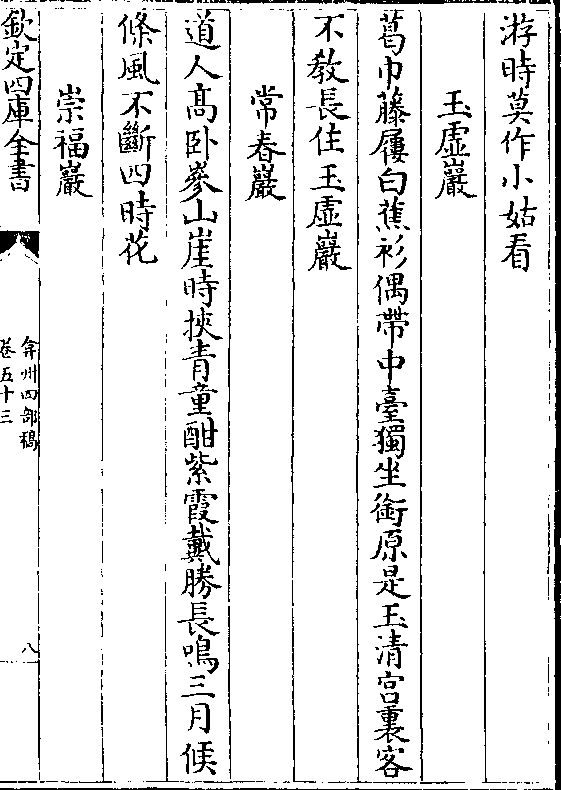 游時莫作小姑看
玉虛巖
葛巾藤屨白蕉衫偶帶中臺獨坐銜原是玉清宫裏客
不敎長住玉虛巖
常春巖
道人髙卧㕘山崖時挾青童酣紫霞戴勝長鳴三月候
條風不斷四時花
崇福巖
欽定四庫全書
弇州四部稿
卷五十三
八